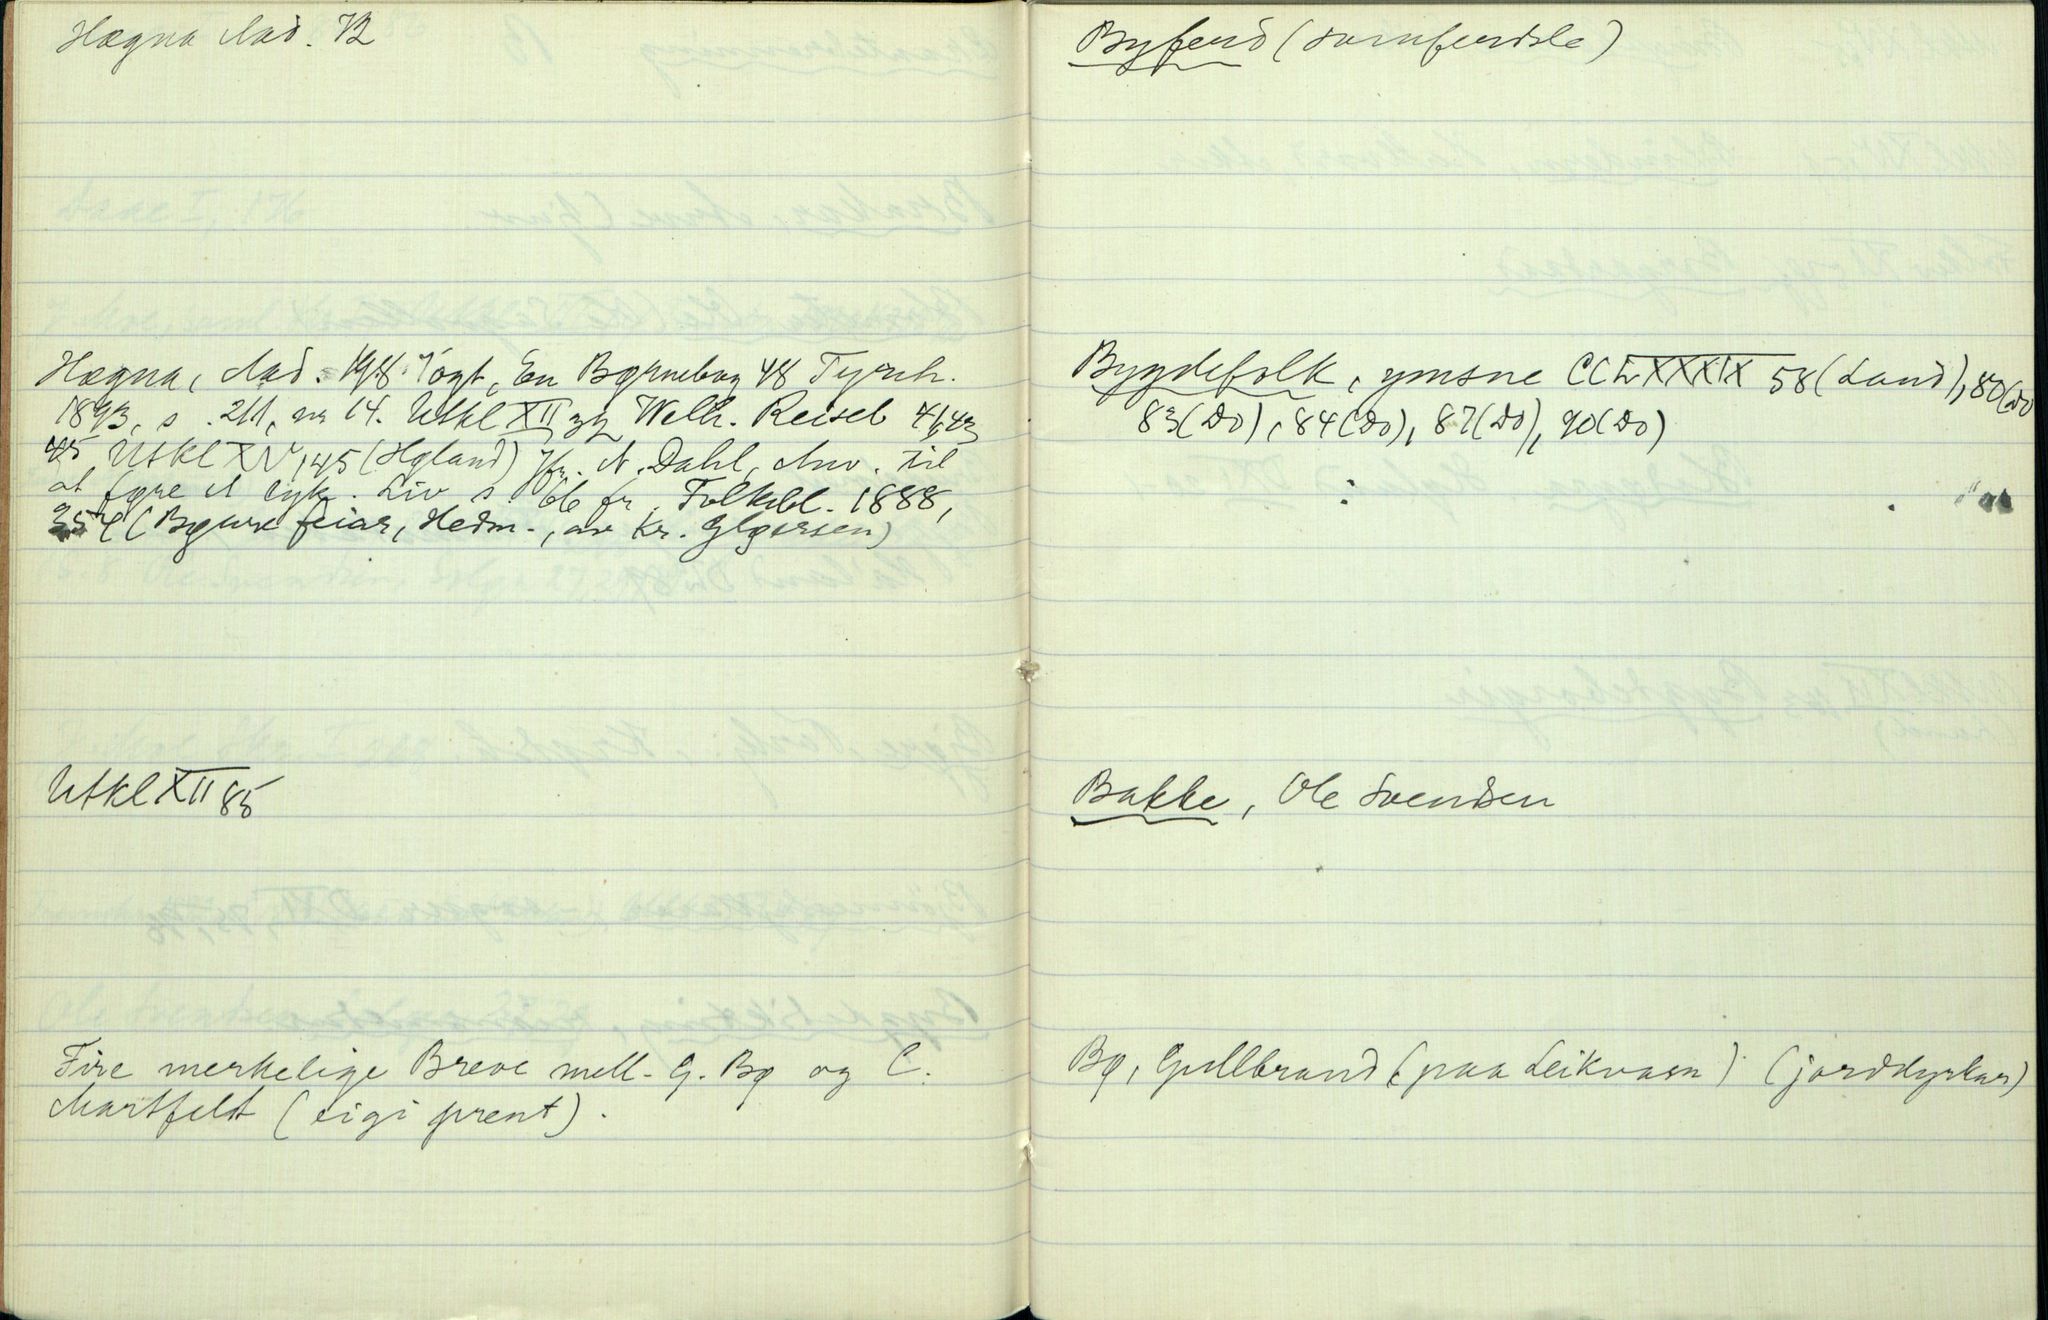 Hægna Mad. B
Hægna, Mad. 198 Vogt, En Børnebog 48 Tyrih.
1893, s. 211, nr 14. Utkl XII Welh. Reiseb 41,43
45 Utkl XV, 45 (Høland) jfr. N. Dahl, Anv. til
at føre et lyk. Liv s 66 fr. Folkebl. 1888,
354 (Bøure feiar, Hedm., av Kr. Gløersen)
Utkl XII 85
Fire merkelige Breve mell. G. Bø og C.
Martfelt (eigi prent).
Byferd (barnferdsle)
Bygdefolk, ymsne CCLXXXIX 58 (Land), 80 (Do
83 (Do), 84 (Do), 87 (Do), 90 (Do)
Bakke, Ole Svendsen
Bø, Gullbrand (paa Leikvasn) (jorddyrkar)